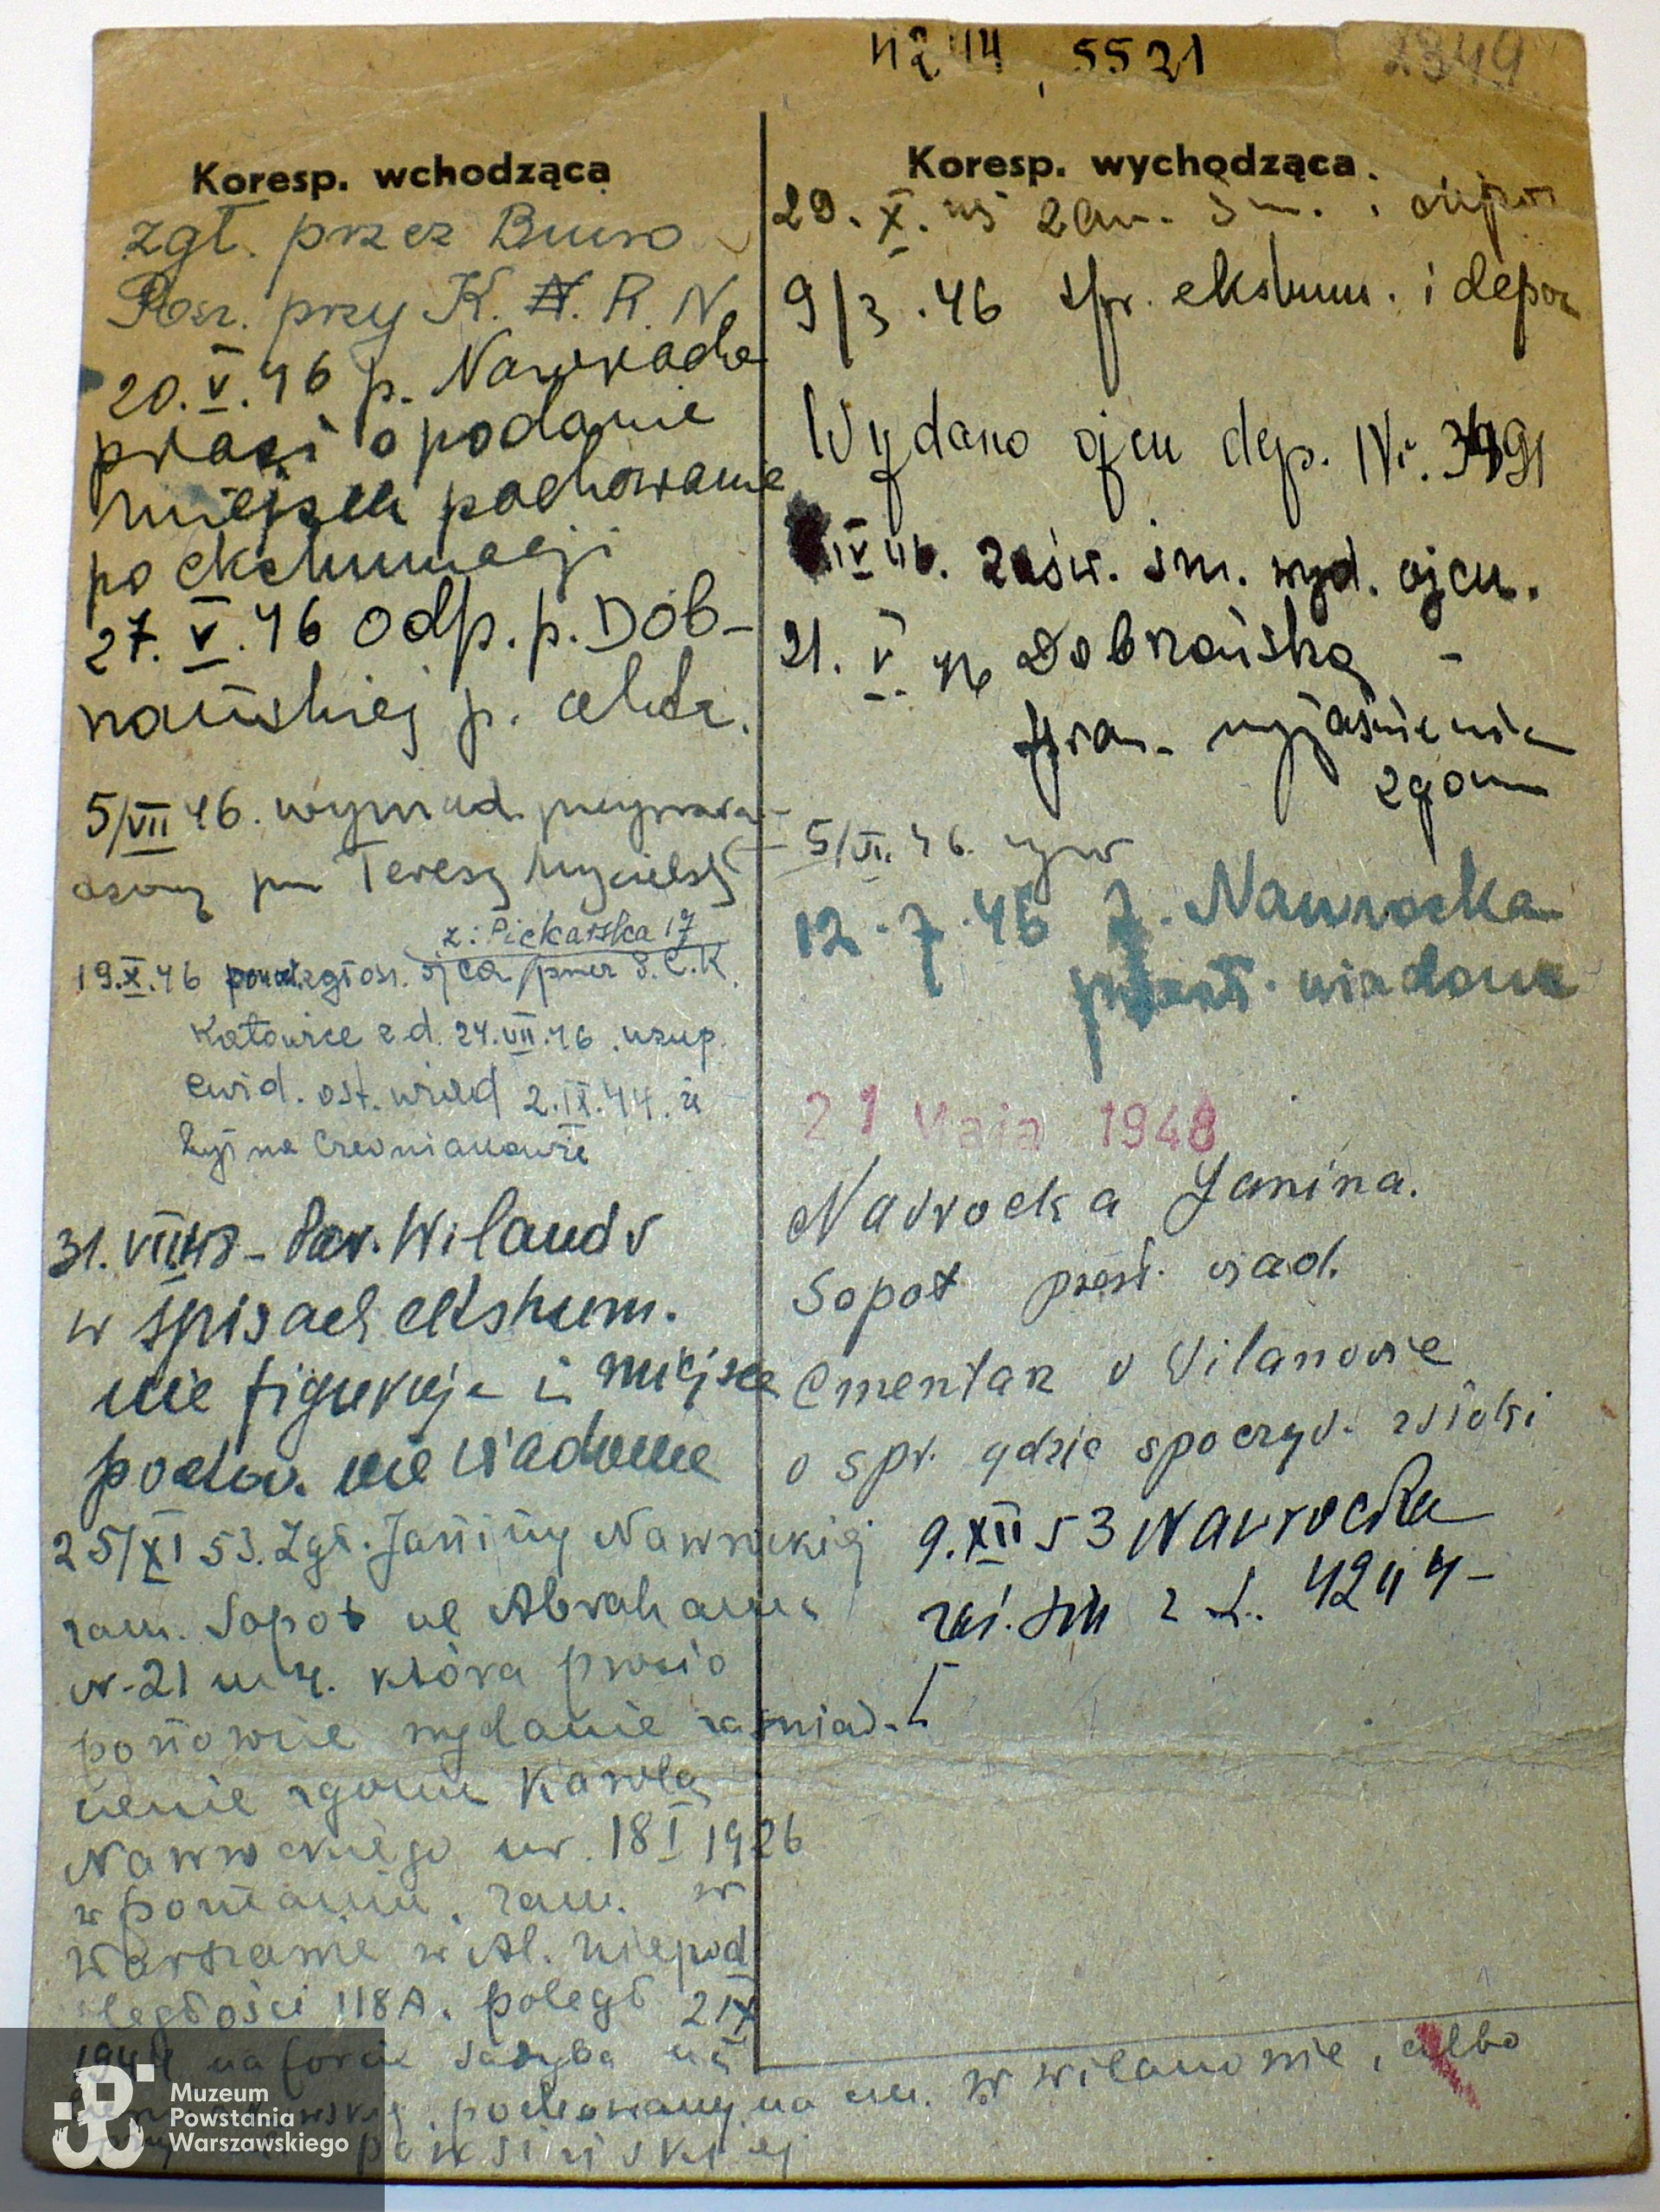 4244, 5521 2349
Koresp. wchodząca
zgł. przez Biuro
Posz. przy K. R. N.
20.V.46 p. Nawrocka
prosi o podanie
miejsca pochowania
po ekshumacji
27.V.46 odp. p. Dob-
rzańskiej p. ekshu.
5/VII 46. wywiad przeprowa-
dzony p. Teresę Mycielską
z: Piekarska 17
19.X.46 zgłosz. ojca przez P.C.K.
Katowice z d. 24.VII.46. uzup.
ewid. ost. wiad 2.IX.44. że
był na Czerniakowie
31.VII.48 - Par. Wilanów
w spisach ekshum.
nie figuruje i miejsce
pochow. nie wiadome
25/XI 53. Zgł. Janiny Nawrockiej
zam. Sopot ul Abrahama
Nr. 21 m 4. która prosi o
ponowne wydanie zaświad-
czenie zgonu Karola
Nawrockiego ur. 18 I 1926
w Poznaniu, zam. w
Warszawie w Al. Niepod
ległości 118A. poległ 2 IX
1944 na forcie Sadyba
pochowany na cm. w Wilanowie, albo
Koresp. wychodząca.
29. X.
9/3.46 spr. ekshum. i depoz
Wydano ojcu dep. Nr.
IV 46. zaśw. śm. wyd. ojcu.
21. V 46 Dobrzańska -
wyjaśnienie
zgonu
5/VI. 46. wyw
12.7.46 J. Nawrocka
przesł. wiadom
21 Maja 1948
Nawrocka Janina.
Sopot przesł. wiad.
Cmentarz w Wilanowie
w spr. gdzie spoczyw. zwłoki
9.XII 53 Nawrocka
zaś. śm z L. 4244 -
Muzeum
Powstania
Warszawskiego